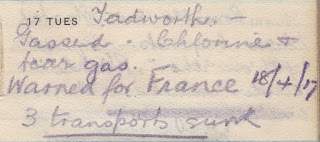 17 TUES Tadworth -
Gassed. Chlorine &
tear gas.
Warned for France 18/4/17
3 transports sunk